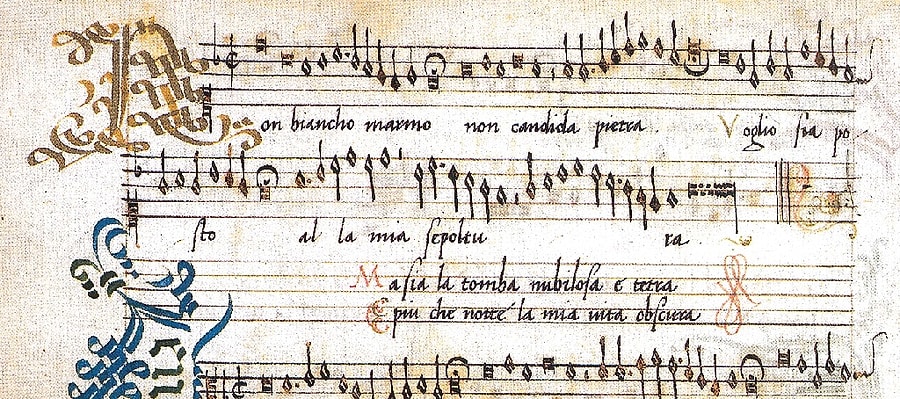 Non biancho marmo non candida pietra Voglio sia po
sto al la mia sepoltu ra
Ma sia la tomba nubilosa e tetra
E più che notte la mia vita obscura